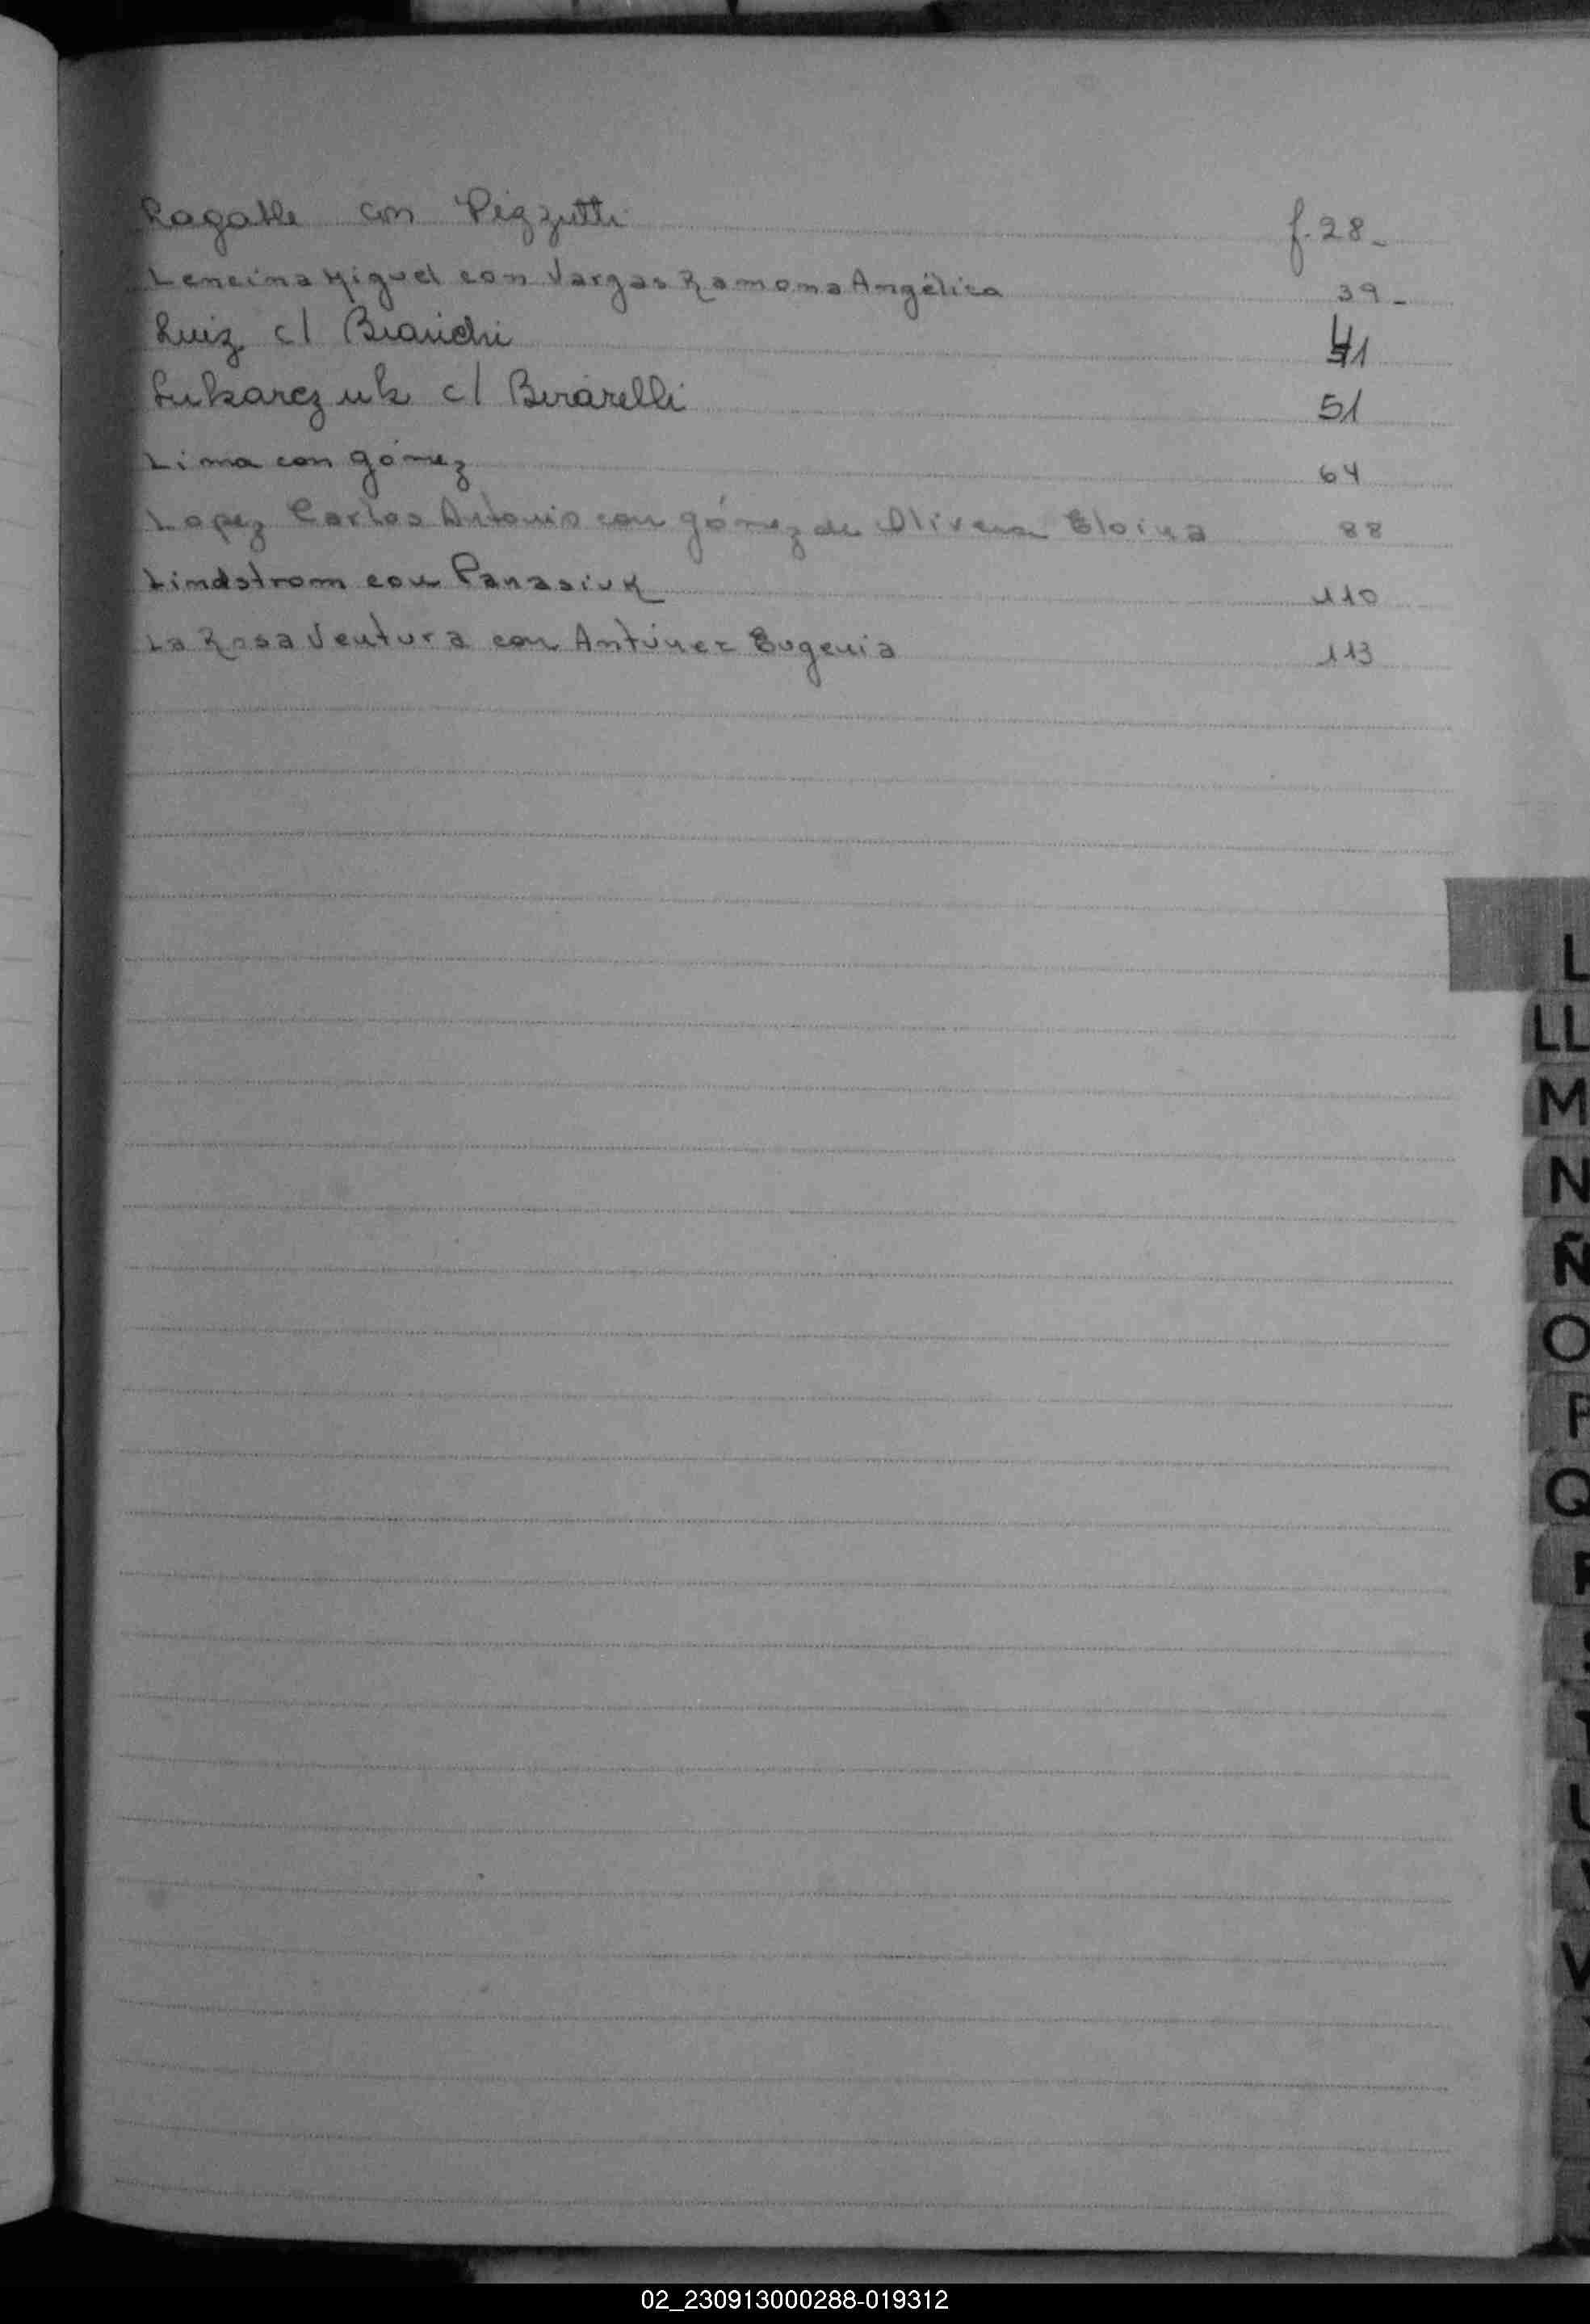 Lagable con Pezzutti f. 28-
Lencina Miguel con Vargas Ramona Angélica 39-
Luiz c/ Bianchi 41
Lukarczuk c/ Berarelli 51
Lima con Gómez 64
Lopez Carlos Antonio con Gómez de Olivera Eloisa 88
Lindstrom con Panasiuk 110
La Rosa Ventura con Antúnez Eugenia 113
L
LL
M
N
Ñ
O
P
Q
R
S
T
U
V
02_230913000288-019312